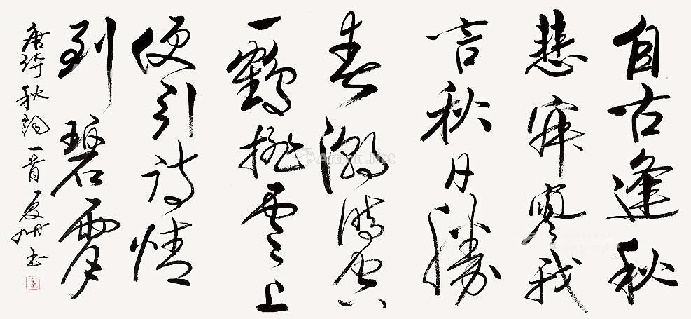 自古逢秋
悲寂寥我
言秋日勝
春潮晴空
一鶴排雲上
便引诗情
到碧霄
唐诗秋词一首 书